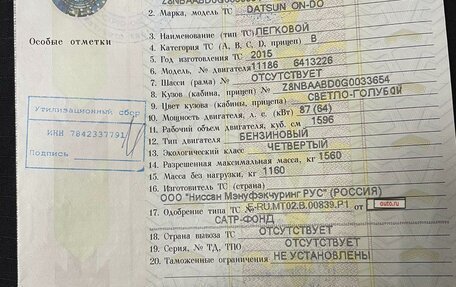 Z8NBAABD0G0033654
2. Марка, модель ТС DATSUN ON-DO
3. Наименование (тип ТС) ЛЕГКОВОЙ
Особые отметки
4. Категория ТС (A, B, C, D, прицеп) B
5. Год изготовления ТС 2015
6. Модель, № двигателя 11186 6413226
7. Шасси (рама) № ОТСУТСТВУЕТ
8. Кузов (кабина, прицеп) № Z8NBAABD0G0033654
9. Цвет кузова (кабины, прицепа) СВЕТЛО-ГОЛУБОЙ
10. Мощность двигателя, л. с. (кВт) 87 (64)
11. Рабочий объем двигателя, куб. см 1596
12. Тип двигателя БЕНЗИНОВЫЙ
13. Экологический класс ЧЕТВЕРТЫЙ
14. Разрешенная максимальная масса, кг 1560
15. Масса без нагрузки, кг 1160
16. Изготовитель ТС (страна)
ООО "Ниссан Мэнуфэкчуринг РУС" (РОССИЯ)
17. Одобрение типа ТС № E-RU.MT02.B.00839.P1 от
auto.ru
САТР-ФОНД
18. Страна вывоза ТС ОТСУТСТВУЕТ
19. Серия, № ТД, ТПО ОТСУТСТВУЕТ
20. Таможенные ограничения НЕ УСТАНОВЛЕНЫ
Утилизационный сбор
ИНН 7842337791
Подпись